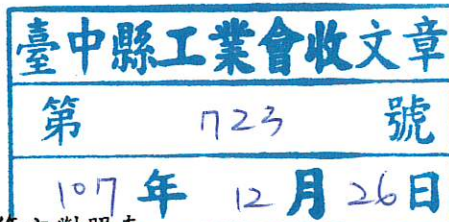 臺中縣工業會收文章
第 723 號
107年 12月 26日